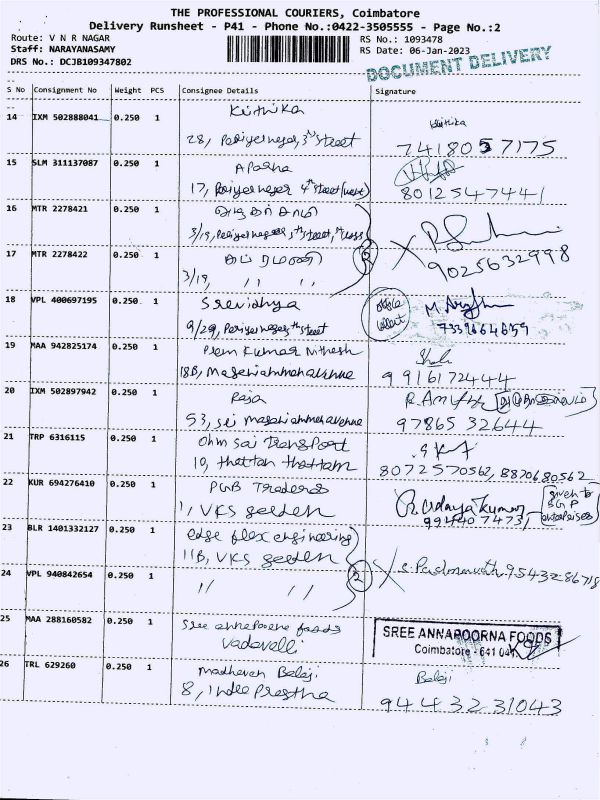 THE PROFESSIONAL COURIERS, Coimbatore
Delivery Runsheet - P41 - Phone No.:0422-3505555 - Page No.:2
Route: V N R NAGAR
RS No.: 1093478
Staff: NARAYANASAMY
RS Date: 06-Jan-2023
DRS No.: DCJB109347802
DOCUMENT DELIVERY
S No Consignment No Weight PCS Consignee Details Signature
14 IXM 502888041 0.250 1 Krithika
28, Periyernagar, 3rd Street
Krithika
74180 5 7175
15 SLM 311137087 0.250 1 Aparna
17, Periyernagar 4th street (west)
8012547441
16 MTR 2278421 0.250 1
3/19, Periyernagar, 5th street,
17 MTR 2278422 0.250 1
3/19, " "
2
9025632998
18 VPL 400697195 0.250 1 Srevidhya
9/29, Periyernagar, street
office collect
7339664659
19 MAA 942825174 0.250 1 Prem Kumar Nithesh
18B, Mageriammahavenue
9916172444
20 IXM 502897942 0.250 1 Raja
53, Sri Mageriammahavenue
97865 32644
21 TRP 6316115 0.250 1 Ohm Sai Transport
10, Thottam Thottam
8072570562, 8870680562
22 KUR 694276410 0.250 1 PGB Traders
1, VKS geeden
R. Udaya Kumar
9944074731
given to SGP enterprises
23 BLR 1401332127 0.250 1 edge flex engineering
11B, VKS geeden
24 VPL 940842654 0.250 1 " "
2
9543286718
25 MAA 288160582 0.250 1 Sree annapoorna foods
Vadavalli
SREE ANNAPOORNA FOODS
Coimbatore - 641 041
26 TRL 629260 0.250 1 Madhavan Balaji
8, Indra Prestha
Balaji
94432 31043